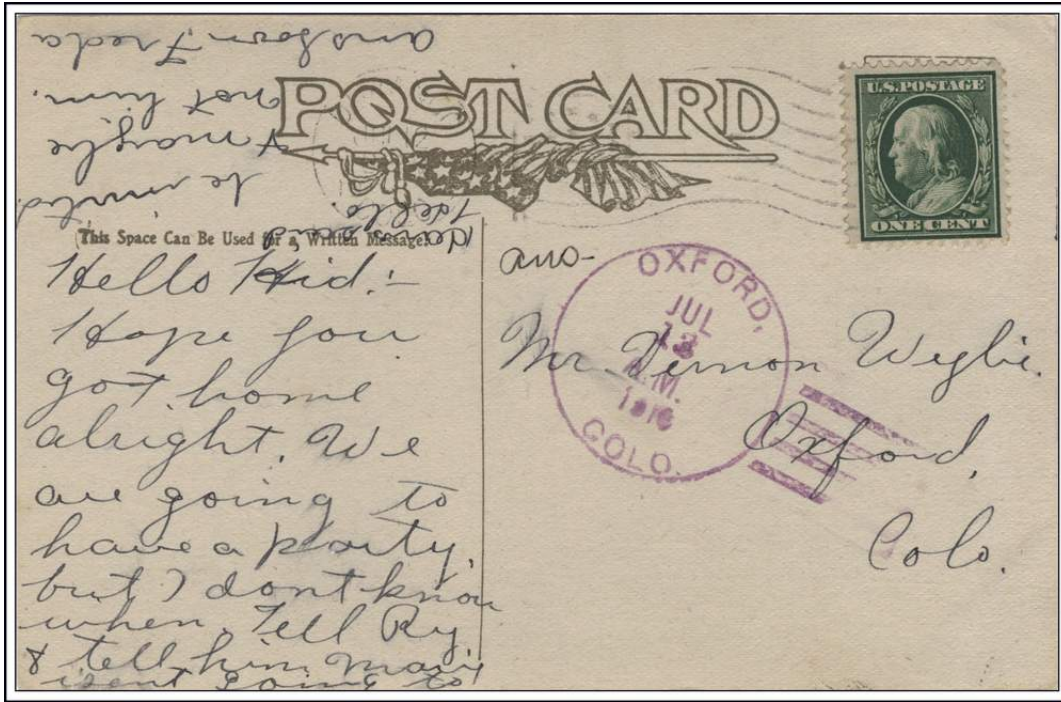 POST CARD
U.S. POSTAGE
ONE CENT
(This Space Can Be Used for a Written Message.)
Hello Kid:-
Hope you
got home
alright. We
are going to
have a party,
but I dont know
when. Tell Ray
& tell him
isent going to
be invited
& maybe
not him.
ans soon Freda
ans-
OXFORD,
JUL
A.M.
COLO.
Mr Vernon Weylie.
Oxford,
Colo.